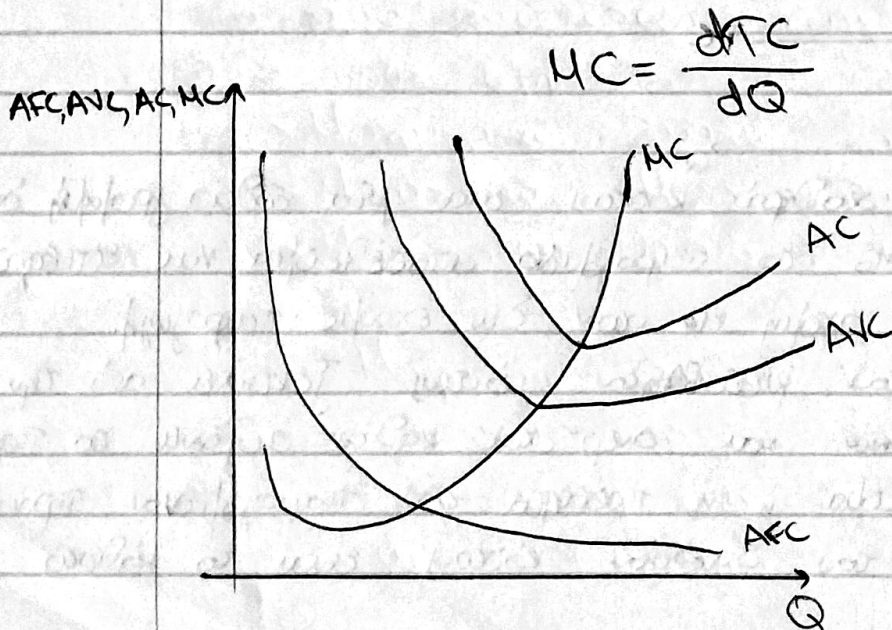 MC = dTC
dQ
AFC, AVC, AC, MC
MC
AC
AVC
AFC
Q